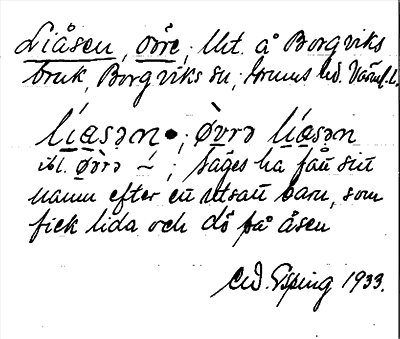 Liåsen, övre; Utt. å Borgviks
bruk, Borgviks sn, Grums hd. Värml. l.
líasən; øvrə líasən
ibl. øvrə –́; Säges ha fått sitt
namn efter en utsatt barn, som
fick lida och dö på åsen
Esping 1933.